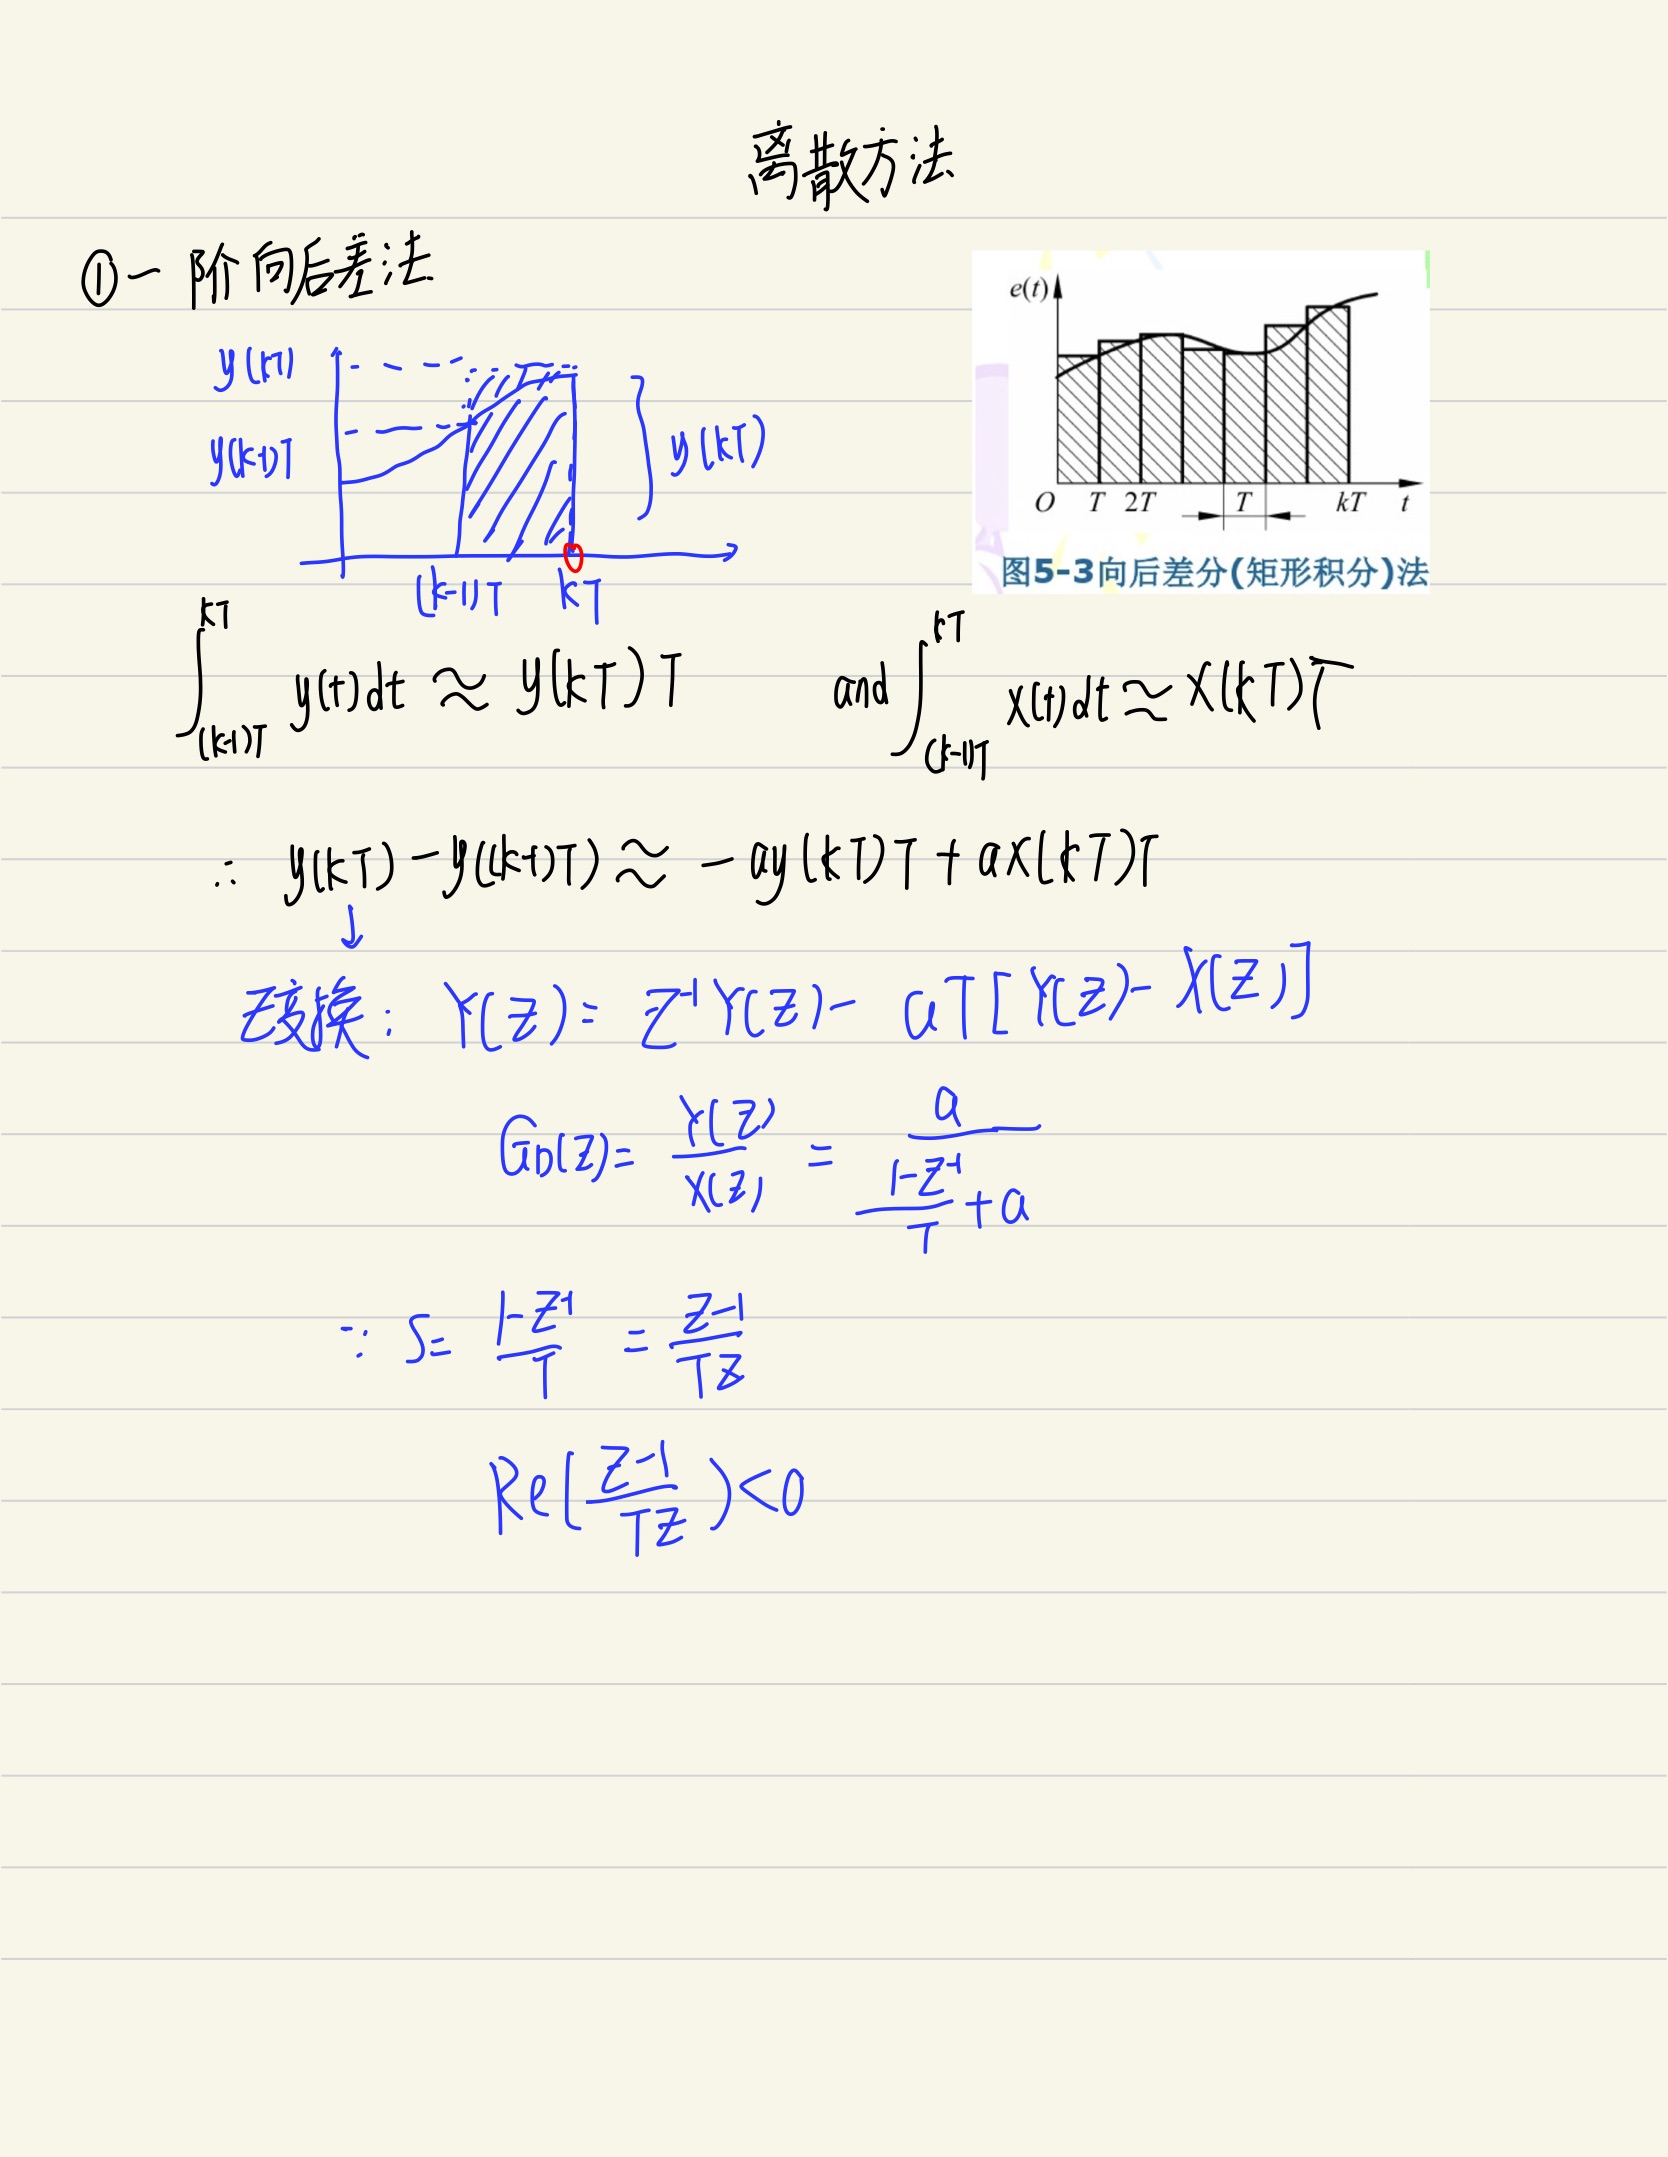 离散方法
①一阶向后差法
y(kT)
y(k-1)T
y(kT)
(k-1)T kT
e(t)
O T 2T T kT t
图5-3向后差分(矩形积分)法
∫_{(k-1)T}^{kT} y(t)dt ≈ y(kT)T and ∫_{(k-1)T}^{kT} x(t)dt ≈ x(kT)T
∴ y(kT)-y((k-1)T) ≈ -ay(kT)T + ax(kT)T
↓
Z变换: Y(Z) = Z⁻¹Y(Z) - aT[Y(Z) - X(Z)]
G_D(Z) = Y(Z)/X(Z) = a/((1-Z⁻¹)/T + a)
∵ S = (1-Z⁻¹)/T = (Z-1)/(TZ)
Re((Z-1)/(TZ))<0